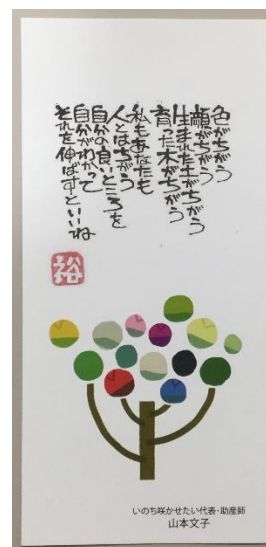 色がちがう
顔がちがう
生まれた土がちがう
育った木がちがう
私もあなたも
人とはちがう
自分の良いところを
自分がわかって
それを伸ばすといいね
裕
いのち咲かせたい代表・助産師
山本文子